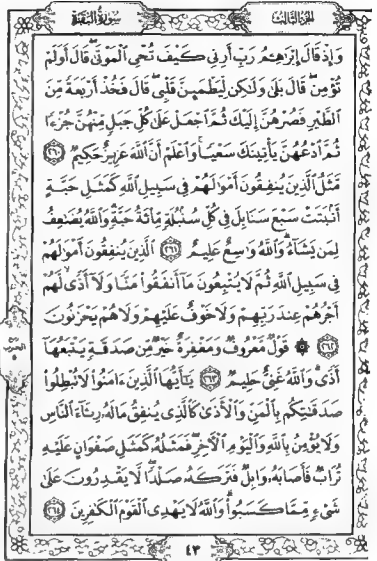 الجزء الثالث
سورة البقرة
وَإِذْ قَالَ إِبْرَٰهِـۧمُ رَبِّ أَرِنِى كَيْفَ تُحْىِ ٱلْمَوْتَىٰ ۖ قَالَ أَوَلَمْ
تُؤْمِن ۖ قَالَ بَلَىٰ وَلَـٰكِن لِّيَطْمَئِنَّ قَلْبِى ۖ قَالَ فَخُذْ أَرْبَعَةً مِّنَ
ٱلطَّيْرِ فَصُرْهُنَّ إِلَيْكَ ثُمَّ ٱجْعَلْ عَلَىٰ كُلِّ جَبَلٍ مِّنْهُنَّ جُزْءًا
ثُمَّ ٱدْعُهُنَّ يَأْتِينَكَ سَعْيًا ۚ وَٱعْلَمْ أَنَّ ٱللَّهَ عَزِيزٌ حَكِيمٌ ٢٦٠
مَّثَلُ ٱلَّذِينَ يُنفِقُونَ أَمْوَٰلَهُمْ فِى سَبِيلِ ٱللَّهِ كَمَثَلِ حَبَّةٍ
أَنۢبَتَتْ سَبْعَ سَنَابِلَ فِى كُلِّ سُنۢبُلَةٍ مِّا۟ئَةُ حَبَّةٍ ۗ وَٱللَّهُ يُضَـٰعِفُ
لِمَن يَشَآءُ ۗ وَٱللَّهُ وَٰسِعٌ عَلِيمٌ ٢٦١ ٱلَّذِينَ يُنفِقُونَ أَمْوَٰلَهُمْ
فِى سَبِيلِ ٱللَّهِ ثُمَّ لَا يُتْبِعُونَ مَآ أَنفَقُوا۟ مَنًّا وَلَآ أَذًى ۙ لَّهُمْ
أَجْرُهُمْ عِندَ رَبِّهِمْ وَلَا خَوْفٌ عَلَيْهِمْ وَلَا هُمْ يَحْزَنُونَ
٢٦٢ ۞ قَوْلٌ مَّعْرُوفٌ وَمَغْفِرَةٌ خَيْرٌ مِّن صَدَقَةٍ يَتْبَعُهَآ
أَذًى ۗ وَٱللَّهُ غَنِىٌّ حَلِيمٌ ٢٦٣ يَـٰٓأَيُّهَا ٱلَّذِينَ ءَامَنُوا۟ لَا تُبْطِلُوا۟
صَدَقَـٰتِكُم بِٱلْمَنِّ وَٱلْأَذَىٰ كَٱلَّذِى يُنفِقُ مَالَهُۥ رِئَآءَ ٱلنَّاسِ
وَلَا يُؤْمِنُ بِٱللَّهِ وَٱلْيَوْمِ ٱلْـَٔاخِرِ ۖ فَمَثَلُهُۥ كَمَثَلِ صَفْوَانٍ عَلَيْهِ
تُرَابٌ فَأَصَابَهُۥ وَابِلٌ فَتَرَكَهُۥ صَلْدًا ۖ لَّا يَقْدِرُونَ عَلَىٰ
شَىْءٍ مِّمَّا كَسَبُوا۟ ۗ وَٱللَّهُ لَا يَهْدِى ٱلْقَوْمَ ٱلْكَـٰفِرِينَ ٢٦٤
٤٣